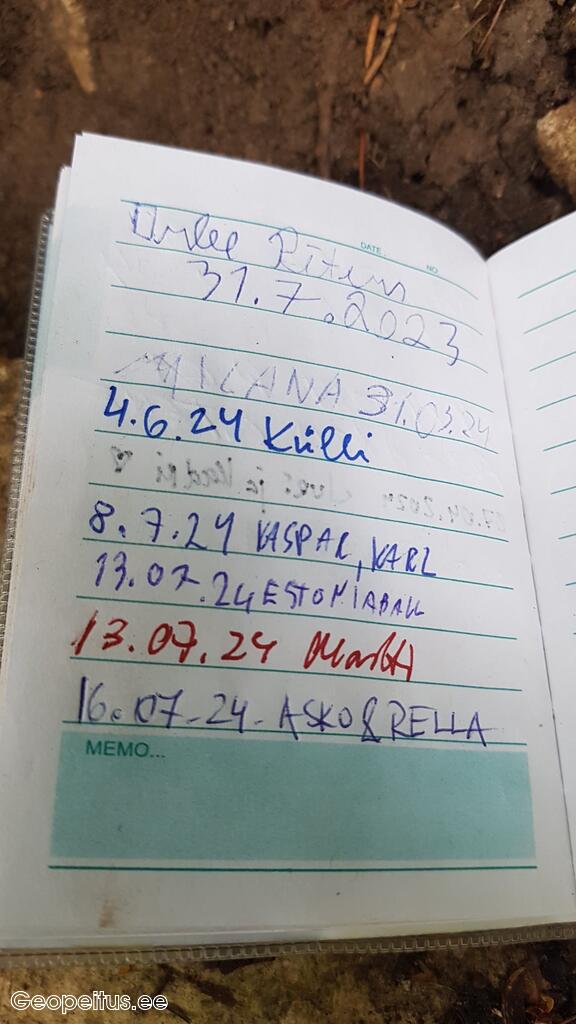 DATE. NO
31.7.2023
MILANA 31.03.24
4.6.24 Külli
8.7.24 KASPAR, KARL
13.07.24 ESTONIABALL
13.07.24
16.07-24- ASKO & RELLA
MEMO...
Geopeitus.ee